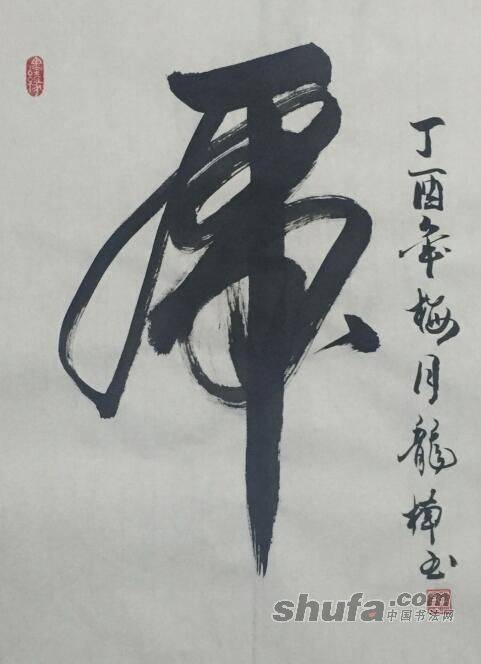 虎
丁酉年梅月龍楠书
shufa.com
中国书法网